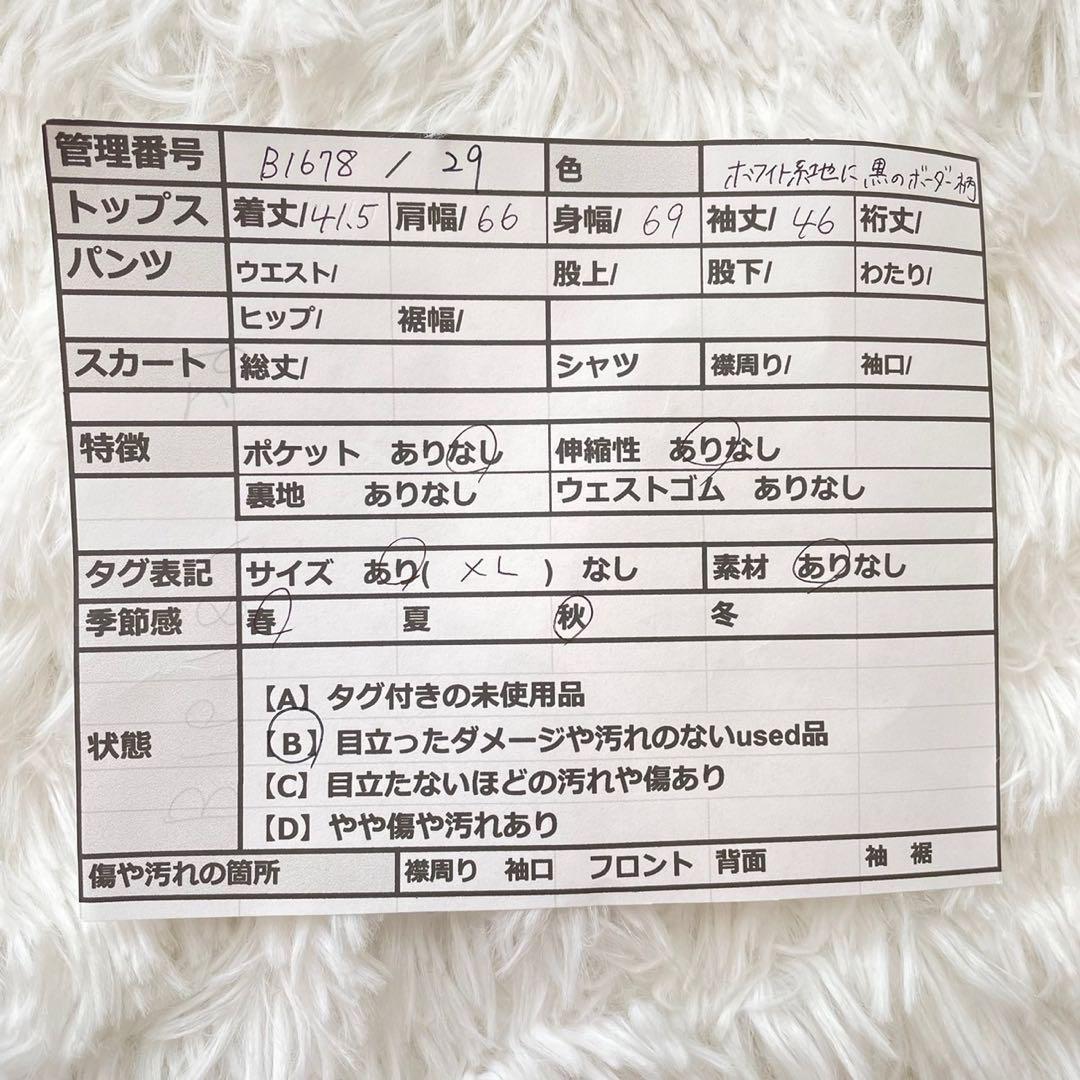 管理番号 B1678 / 29 色 ホワイト系地に黒のボーダー柄
トップス 着丈/41.5 肩幅/66 身幅/69 袖丈/46 裄丈/
パンツ ウエスト/ 股上/ 股下/ わたり/
ヒップ/ 裾幅/
スカート 総丈/ シャツ 襟周り/ 袖口/
特徴 ポケット ありなし 伸縮性 ありなし
裏地 ありなし ウェストゴム ありなし
タグ表記 サイズ あり( XL ) なし 素材 ありなし
季節感 春 夏 秋 冬
状態
【A】タグ付きの未使用品
【B】目立ったダメージや汚れのないused品
【C】目立たないほどの汚れや傷あり
【D】やや傷や汚れあり
傷や汚れの箇所 襟周り 袖口 フロント 背面 袖 裾